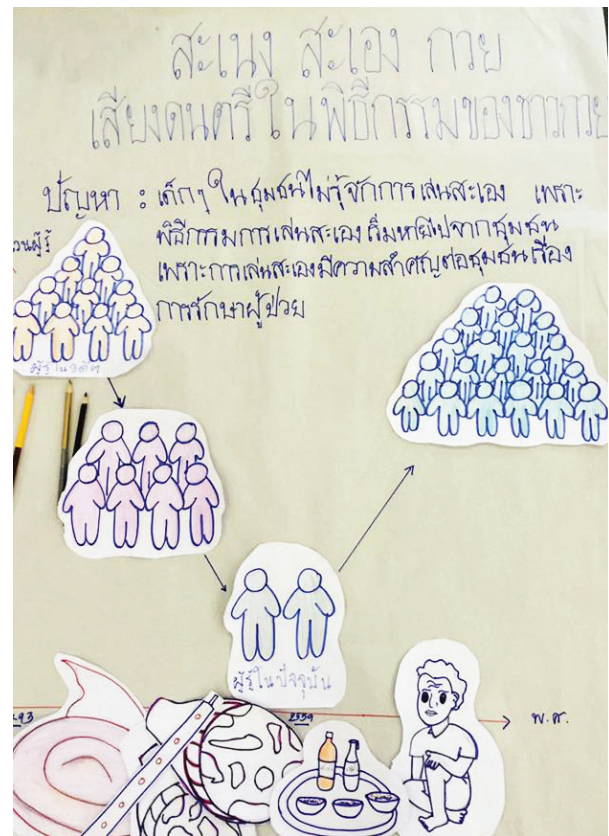 สะเนง สะเอง กวย
เสียงดนตรีในพิธีกรรมของชาวกวย
ปัญหา : เด็กๆ ในชุมชนไม่รู้จักการเล่นสะเอง เพราะ
พิธีกรรมการเล่นสะเอง เริ่มหายไปจากชุมชน
เพราะการเล่นสะเองมีความสำคัญต่อชุมชนเรื่อง
การรักษาผู้ป่วย
วนผู้รู้
ผู้รู้ในอดีต
ผู้รู้ในปัจจุบัน
93
2559
พ.ศ.